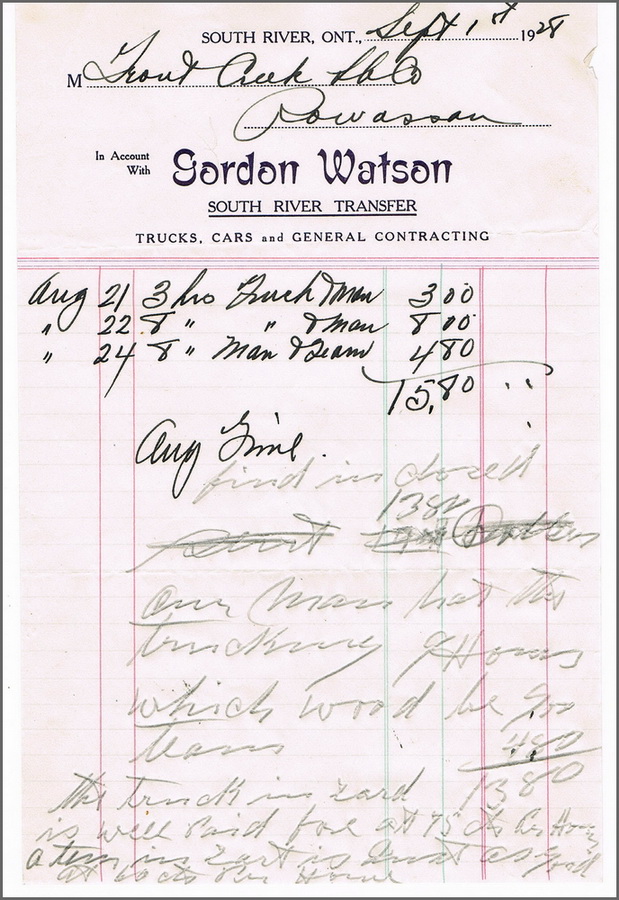 SOUTH RIVER, ONT., Sept 1st 1928
M Trout Creek Lb Co
Powassan
In Account With
Gordon Watson
SOUTH RIVER TRANSFER
TRUCKS, CARS and GENERAL CONTRACTING
Aug 21 3 hrs Truck & Man 3 00
" 22 8 " " & Man 8 00
" 24 8 " Man & Team 4 80
15,80
Aug Time.
find in closed
1380
our man hat the
trucking 9 Hours
which wood be 9 00
team 4.80
the truck in zard 13 80
is well Paid for at 75 cts Per Hour
a team in zart is Just as good
at 60 cts Per Houre